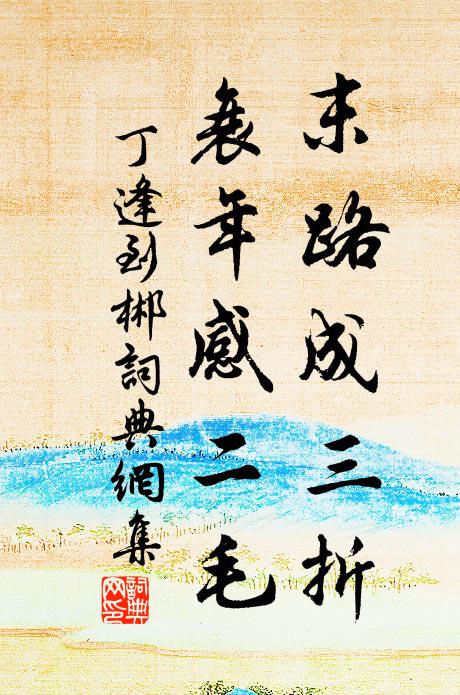 末路成三折
衰年感二毛
丁逢到郴詞典網集
詞典網印